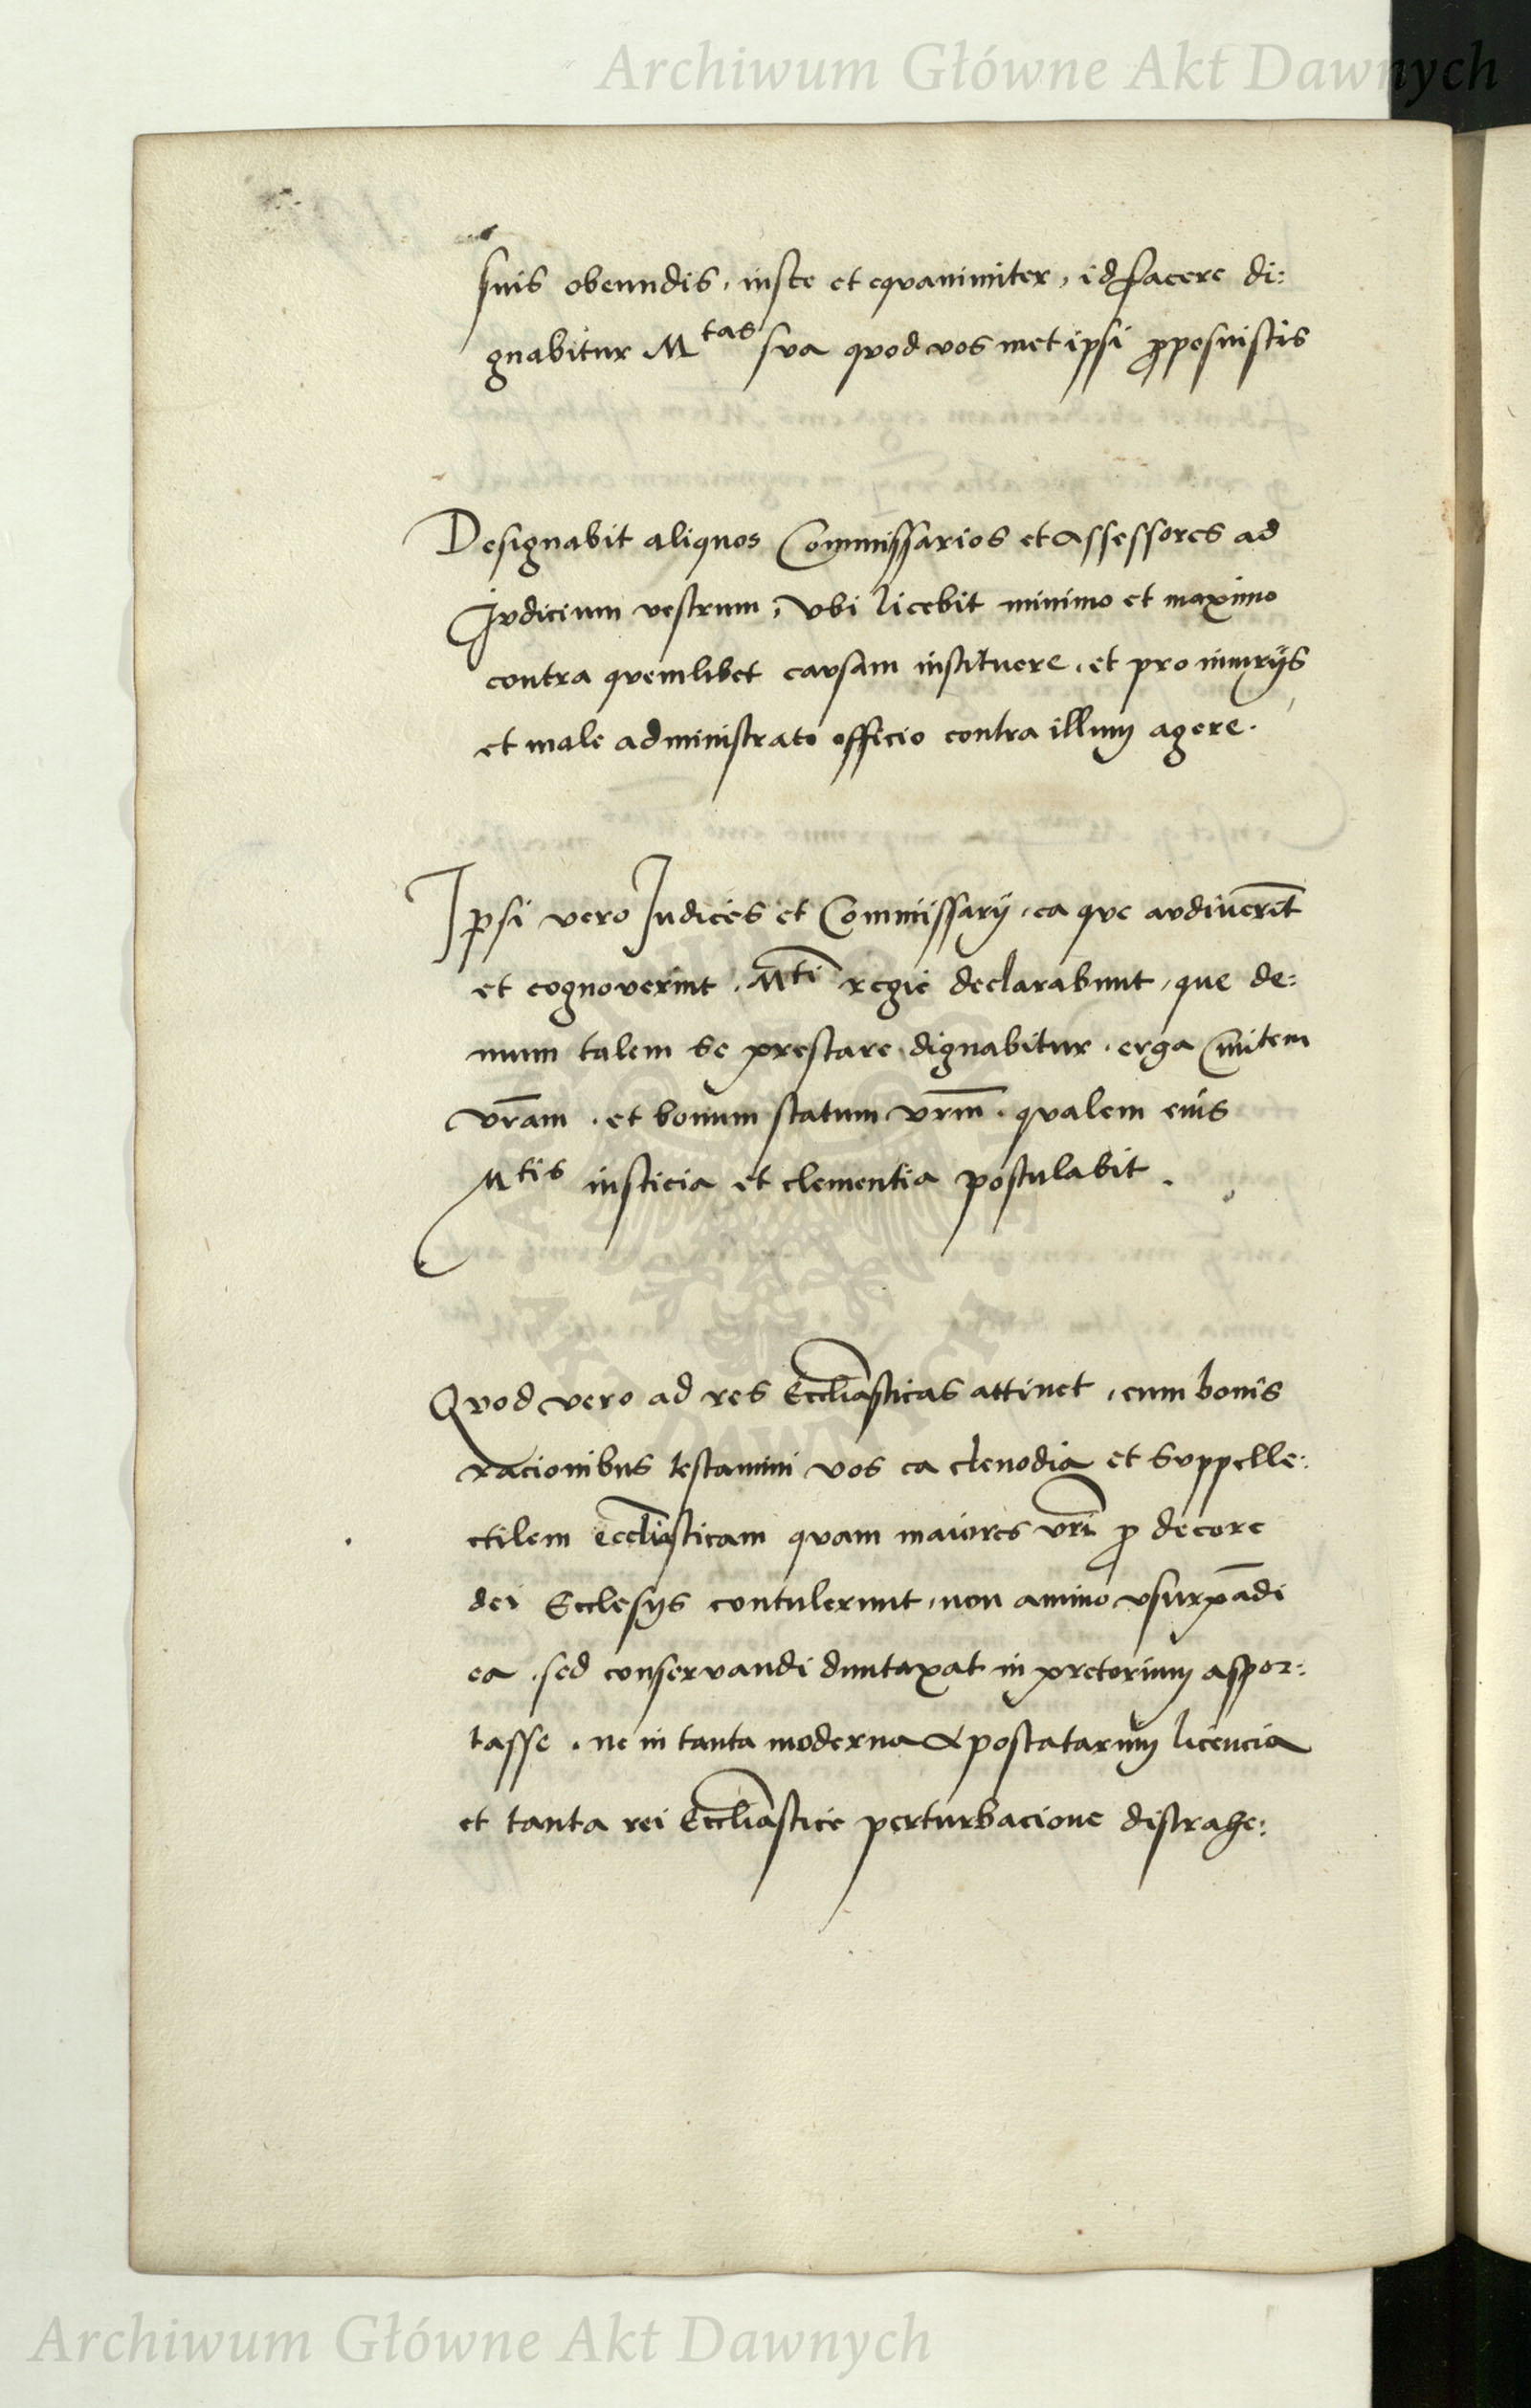 Archiwum Główne Akt Dawnych
suis obeundis, iuste et equanimiter, id facere di:
gnabitur M^tas sva qvod vos met ipsi ꝓposuistis
Designabit aliquos Commissarios et Assessores ad
Jvdicium vestrum, Vbi licebit minimo et maximo
contra qvemlibet cavsam institvere, et pro iniurijs
et male administrato officio contra illum agere.
Ipsi vero Judices et Commissarij, ea qve avdiuerīt
et cognoverint, M^ti regie declarabunt, que de:
mum talem se prestare dignabitur, erga Cmitem
vr̄am, et bonum statum vrm̄, qvalem eius
M^tis iusticia et clementia postulabit.
Qvod vero ad res Eccliasticas attinet, cum bonis
racionibus testamini vos ea clenodia et Svppelle:
ctilem eccliasticam qvam maiores vrī ꝓ decore
dei Ecclesijs contulerunt, non animo vsurpādi
ea, sed conservandi duntaxat in pretorium aspor:
tasse, ne in tanta moderna Apostatarum licencia
et tanta rei Eccliastice perturbacione distrahe:
AKT DAWNYCH
Archiwum Główne Akt Dawnych